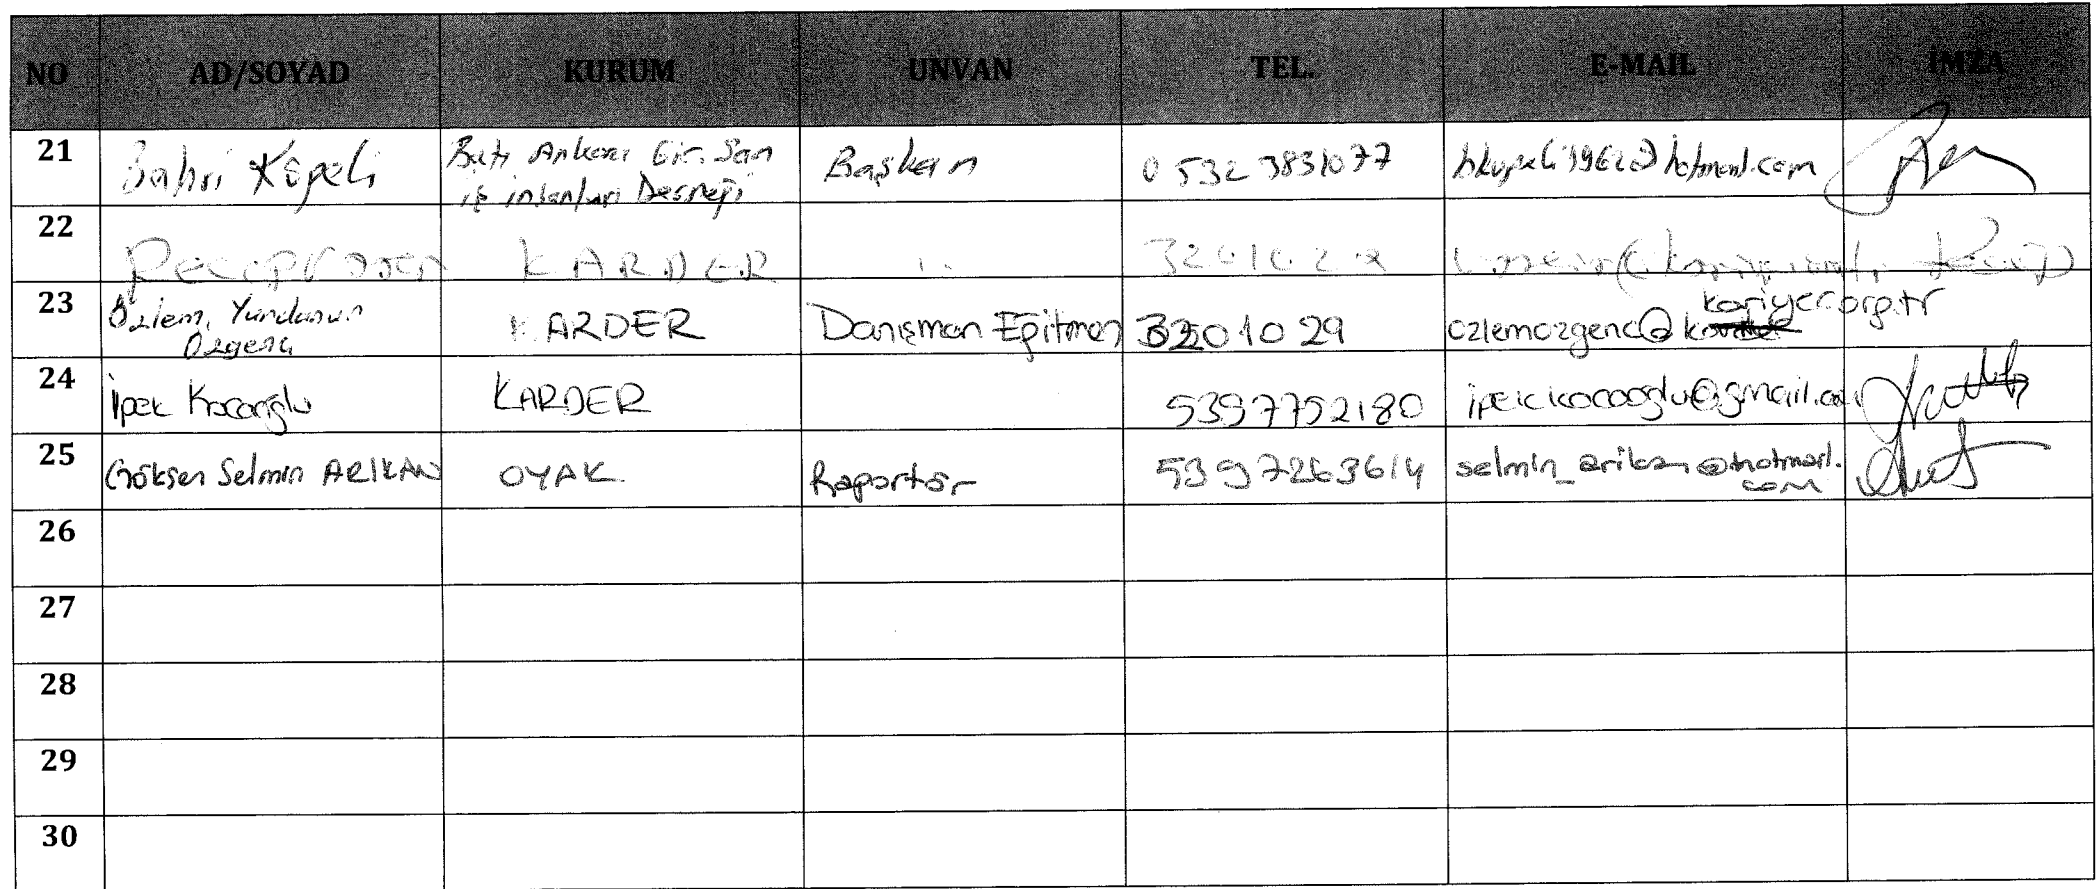 NO AD/SOYAD KURUM UNVAN TEL. E-MAIL İMZA
21 Bahri Köpeli Batı Ankara Gir. San Başkan 0 532 3831077 bkupeli1962@hotmail.com
iş insanları Derneği
22 KARDER
23 Özlem Yundasun KARDER Danışman Eğitmen 320 10 29 ozlemozgenc@ kariyer.org.tr
Özgenç
24 İpek Kocaoğlu KARDER 5397752180 ipekkocaoglu@gmail.com
25 Göksen Selmin ARIKAN OYAK Raportör 5397263614 selmin_arikan@hotmail.
com
26
27
28
29
30